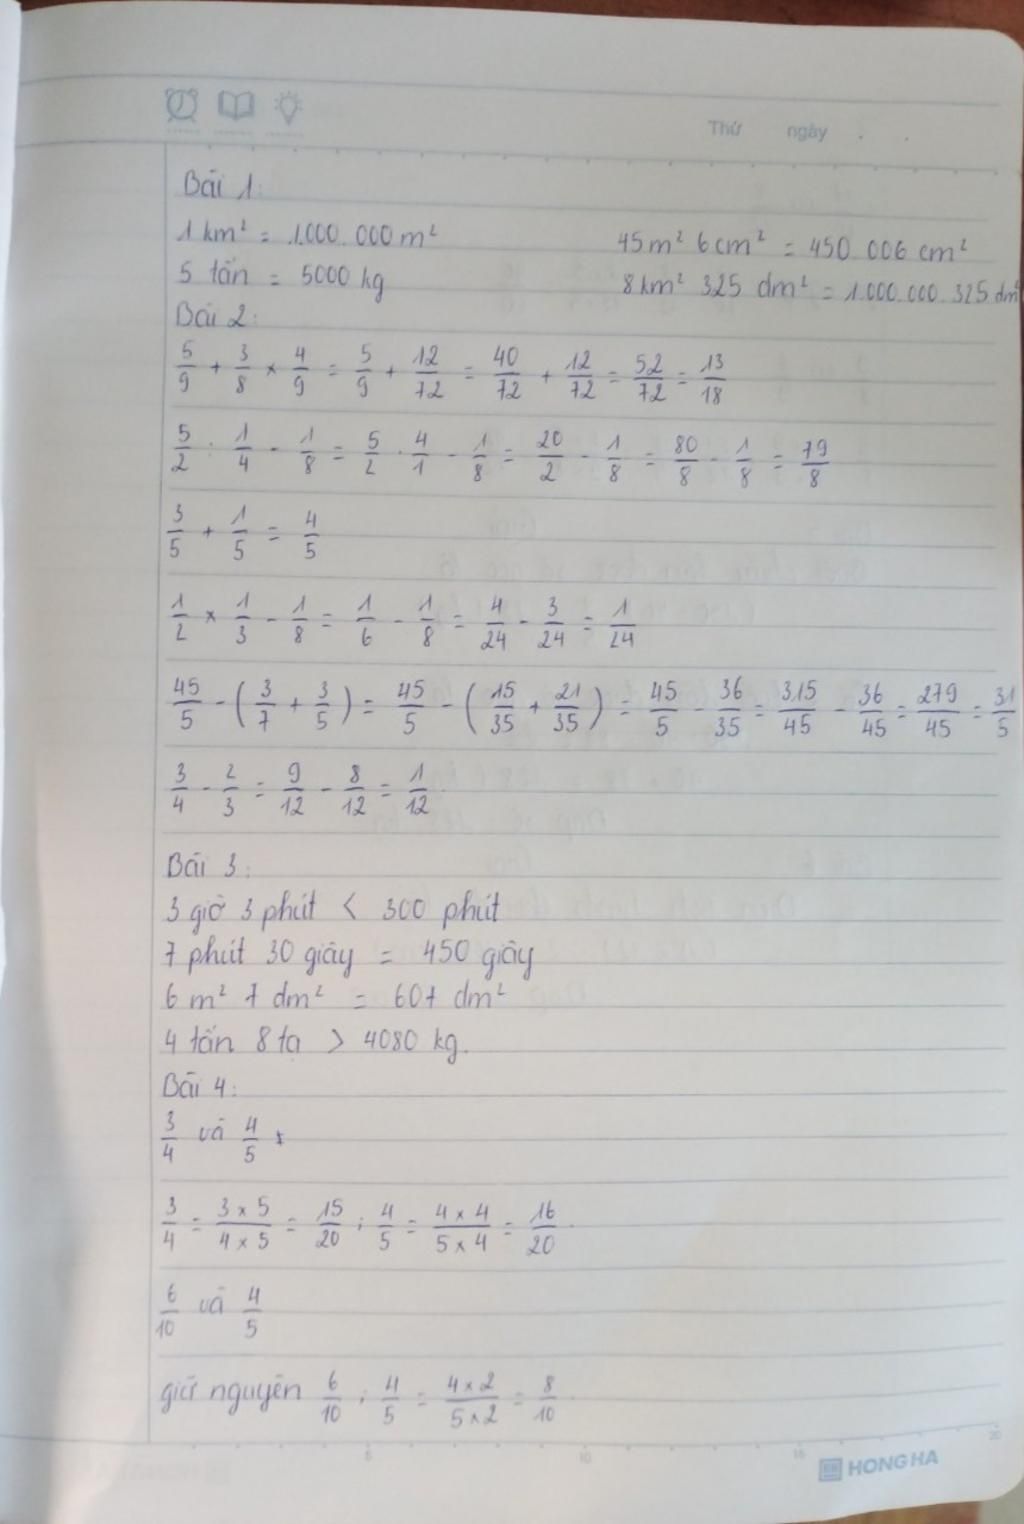 Thứ ngày . .
Bài 1:
1 km² = 1.000.000 m² 45 m² 6 cm² = 450.006 cm²
5 tấn = 5000 kg 8 km² 325 dm² = 1.000.000.325 dm²
Bài 2:
5/9 + 3/8 × 4/9 = 5/9 + 12/72 = 40/72 + 12/72 = 52/72 = 13/18
5/2 : 1/4 - 1/8 = 5/2 . 4/1 - 1/8 = 20/2 - 1/8 = 80/8 - 1/8 = 79/8
3/5 + 1/5 = 4/5
1/2 × 1/3 - 1/8 = 1/6 - 1/8 = 4/24 - 3/24 = 1/24
45/5 - (3/7 + 3/5) = 45/5 - (15/35 + 21/35) = 45/5 - 36/35 = 315/45 - 36/45 = 279/45 = 31/5
3/4 - 2/3 = 9/12 - 8/12 = 1/12
Bài 3:
3 giờ 3 phút < 300 phút
7 phút 30 giây = 450 giây
6 m² 7 dm² = 607 dm²
4 tấn 8 tạ > 4080 kg.
Bài 4:
3/4 và 4/5
3/4 = 3 × 5/4 × 5 = 15/20 ; 4/5 = 4 × 4/5 × 4 = 16/20
6/10 và 4/5
giữ nguyên 6/10 ; 4/5 = 4 × 2/5 × 2 = 8/10
5 10 15 20
HONG HA